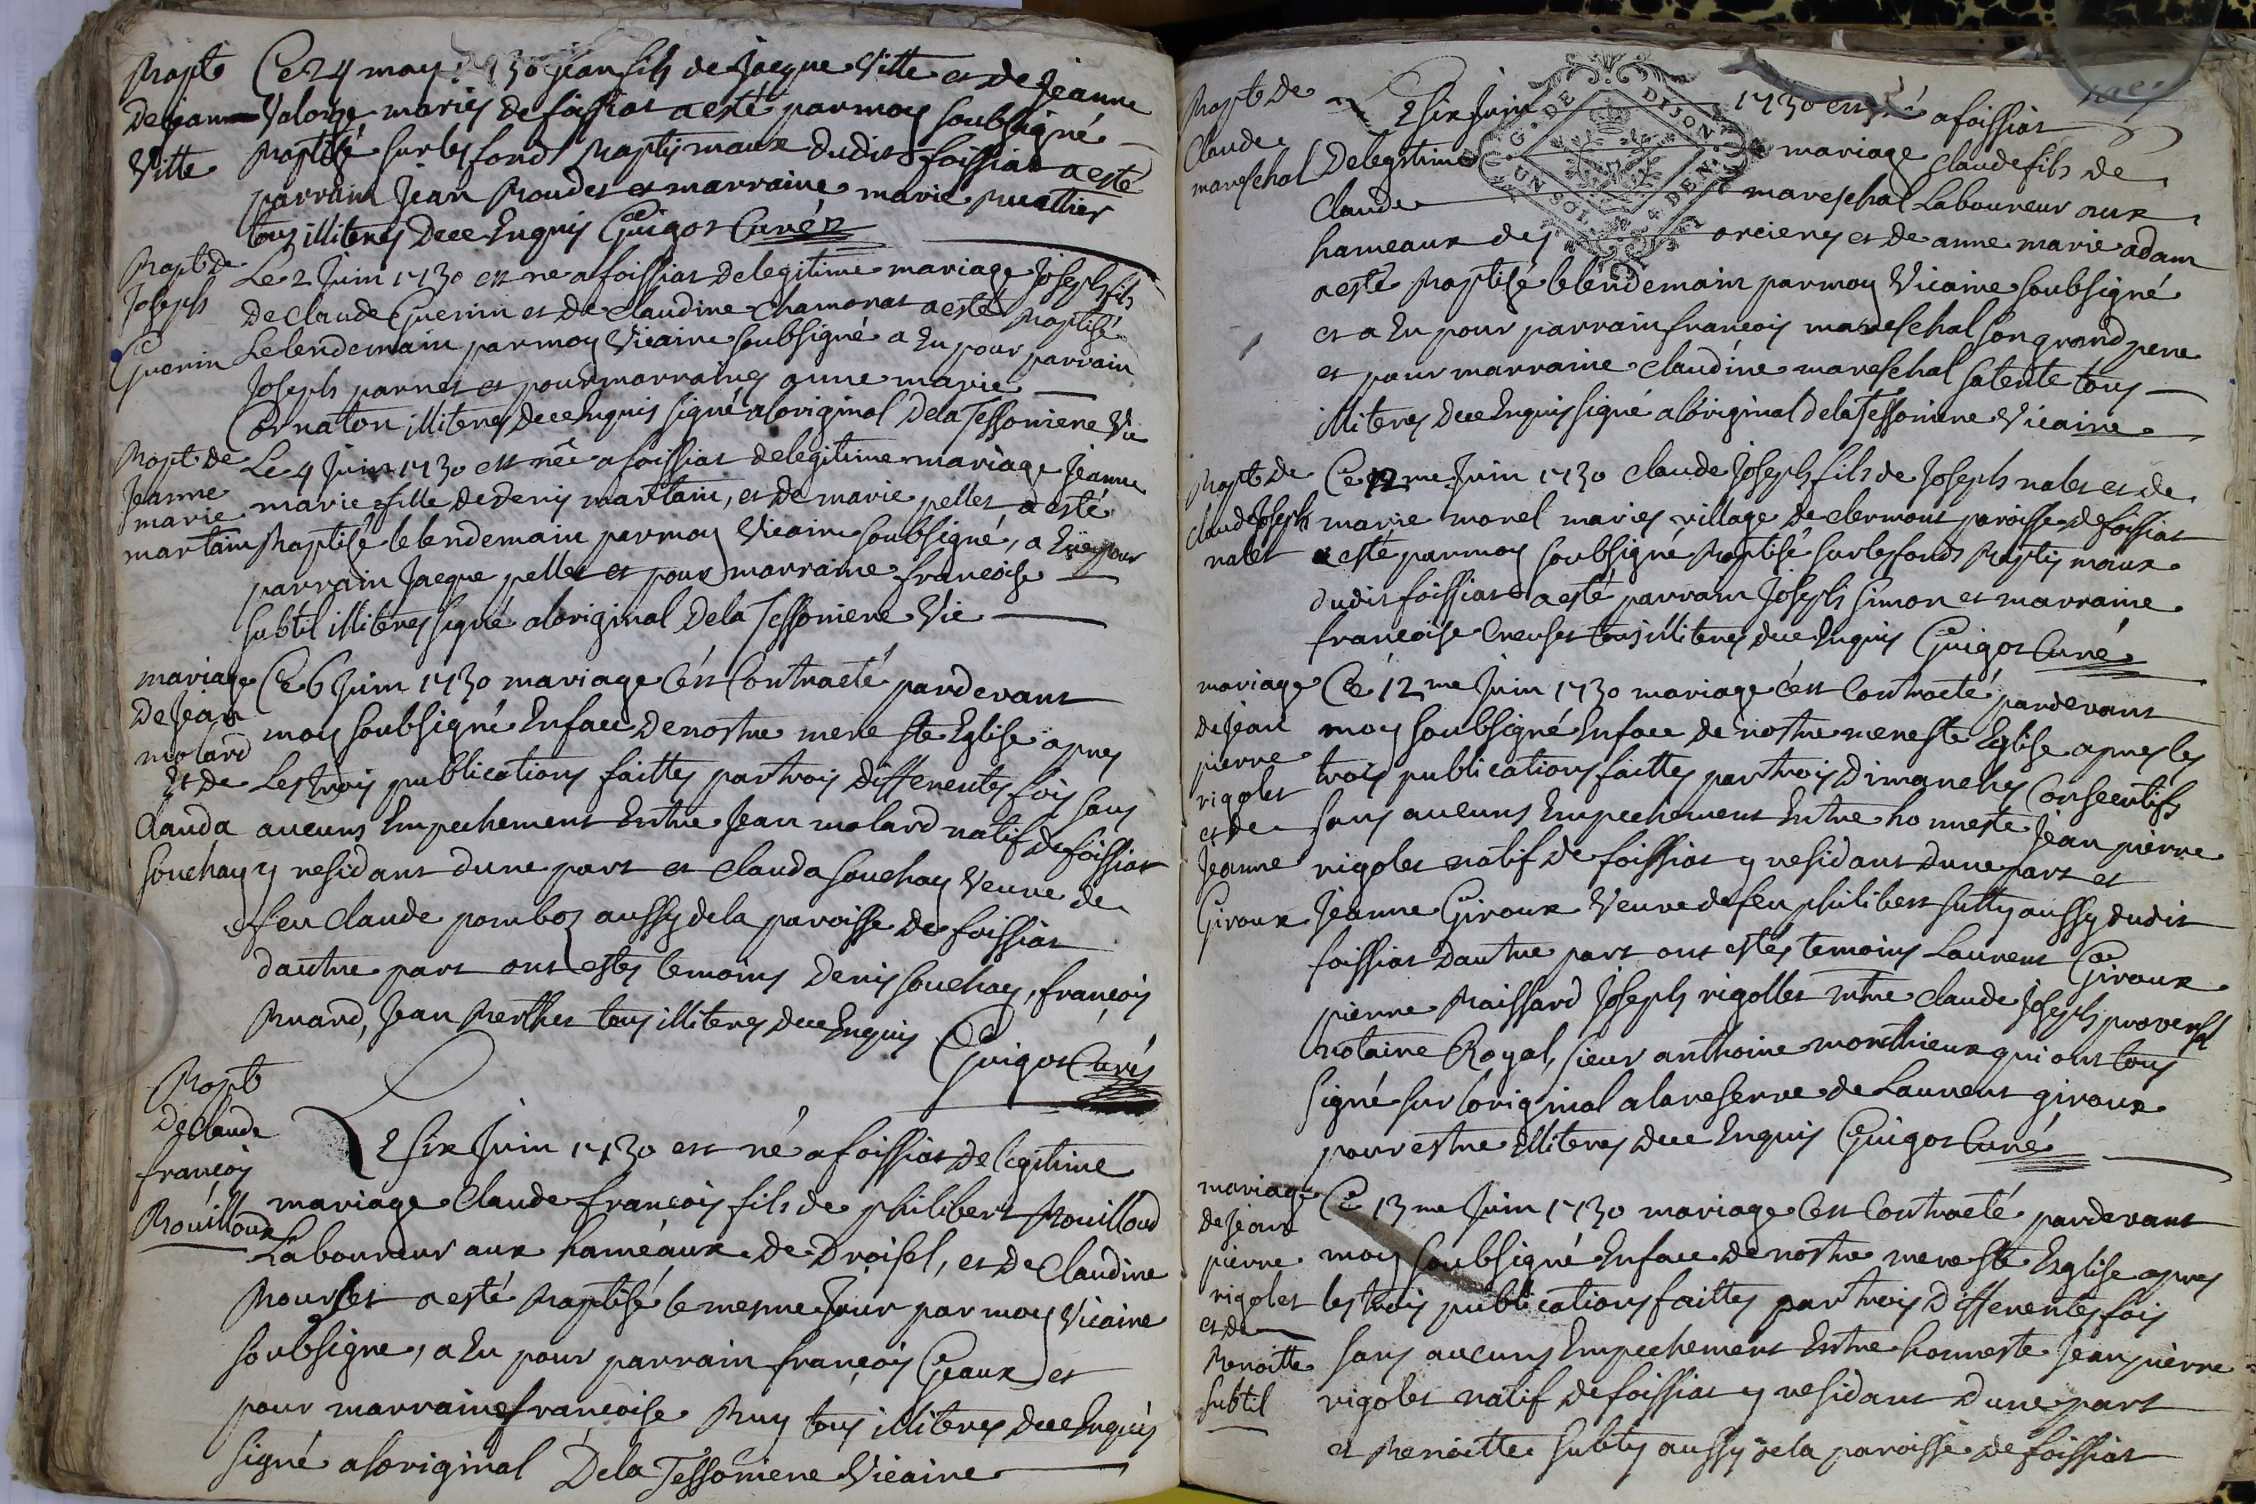 Bapt
de jean
Vitte
Ce 24 may 1730 jean fils de Jacque Vitte et de Jeanne
Valorge mariés de foissiat a esté par moy soubsigné
Baptisé sur les fonds Baptismaux dudit foissiat a esté
parrain Jean Boudet et marraine marie
tous illiteres de ce Enquis Guigot Curé
Bapt de
Joseph
Guerin
Le 2 Juin 1730 est ne a foissiat de legitime mariage Joseph fils
de Claude Guerin et de Claudine Chamonat a esté Baptisé
Le lendemain par moy Vicaire soubsigné a Eu pour parrain
Joseph pannet et pour marraines anne marie
Cornaton illiteres de ce Enquis signé a loriginal De la Tessoniere Vic
Bapt de
Jeanne
marie
martain
Le 4 Juin 1730 est née a foissiat de legitime mariage Jeanne
marie fille de denis martain, et de marie pellet a esté
Baptisé le lendemain par moy Vicaire soubsigné, a Eue pour
parrain Jacque pellet et pour marraine francoise
subtil illiteres signé a loriginal De la Tessoniere Vic
mariage
De Jean
molard
Et de
Clauda
Souchay
Ce 6 Juin 1730 mariage cést Contracté pardevant
moy soubsigné En face de nostre mere Ste Eglise apres
Les trois publications faittes par trois differentes fois sans
aucuns Empechement Entre Jean molard natif de foissiat
y residant dune part et Clauda Souchay Veuve de
feu Claude pomboz aussy de la paroisse de foissiat
dautre part ont estes temoins Denis Souchay, françois
Buard, Jean Berthet tous illiteres de ce Enquis
Guigot Curé
Bapt
de Claude
françois
Bouilloux
Le six Juin 1730 est né a foissiat de legitime
mariage Claude françois fils de philibert Bouilloud
Laboureur aux hameaux de Droisel, et de Claudine
a esté Baptisé le mesme Jour par moy Vicaire
soubsigne, a Eu pour parrain françois Geaux et
pour marraine francoise Buy tous illiteres de ce Enquis
signé a loriginal De la Tessoniere Vicaire
Bapt de
Claude
mareschal
Le six Juin 1730 est né a foissiat
De legitime mariage Claude fils de
Claude mareschal Laboureur aux
hameaux des orcieres et de anne marie adam
a esté Baptisé le lendemain par moy Vicaire soubsigné
et a Eu pour parrain francois mareschal son grand pere
et pour marraine Claudine mareschal sa tente tous
illiteres de ce Enquis signé a loriginal de la Tessoniere Vicaire
G. DE DIJON
UN SOL 4 DEN.
Bapt de
Claude Joseph
nalet
Ce 12me Juin 1730 Claude Joseph fils de Joseph nalet et de
marie morel mariés village de clermont paroisse de foissiat
a esté par moy soubsigné Baptisé sur les fonds Baptismaux
dudit foissiat a esté parrain Joseph Simon et marraine
françoise Creuset tous illiteres de ce Enquis Guigot Curé
mariage
de Jean
pierre
rigolet
et de
Jeanne
Giroux
Ce 12me Juin 1730 mariage cést Contracté pardevant
moy soubsigné En face de nostre mere Ste Eglise apres les
trois publications faittes par trois Dimanches Consecutifs
sans aucuns Empechement Entre honneste Jean pierre
rigolet natif de foissiat y residant dune part et
Jeanne Giroux Veuve de feu philibert sutty aussy dudit
foissiat dautre part ont estes temoins Laurent Giroux
pierre Baissard Joseph rigollet mtre Claude Joseph provensal
notaire Royal, sieur anthoine monthieux qui ont tous
signé sur loriginal a la reserve de Laurent giroux
pour estre illiteres de ce Enquis Guigot Curé
mariage
de Jean
pierre
rigolet
et de
Benoitte
subtil
Ce 13me Juin 1730 mariage cést Contracté pardevant
moy soubsigné En face de nostre mere Ste Eglise apres
les trois publications faittes par trois differentes fois
sans aucuns Empechement Entre honneste Jean pierre
rigolet natif de foissiat y residant dune part
et Benoitte subtil aussy de la paroisse de foissiat